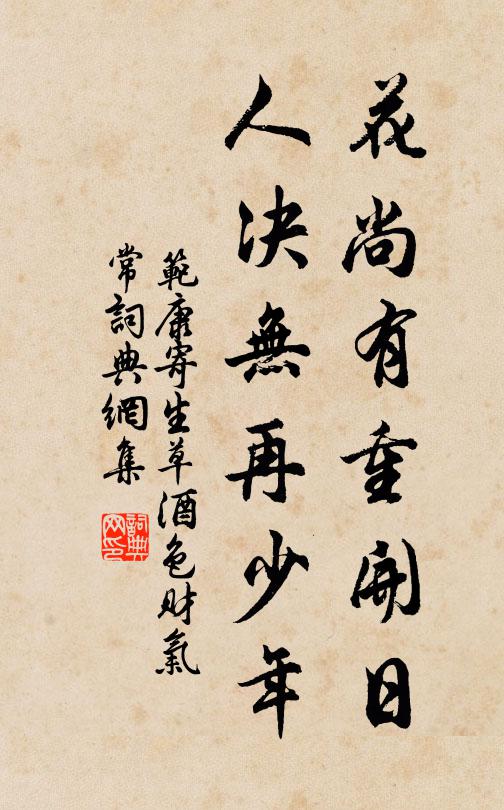 花尚有重開日
人決無再少年
範康寄生草酒色財氣
常詞典網集
詞典
网印